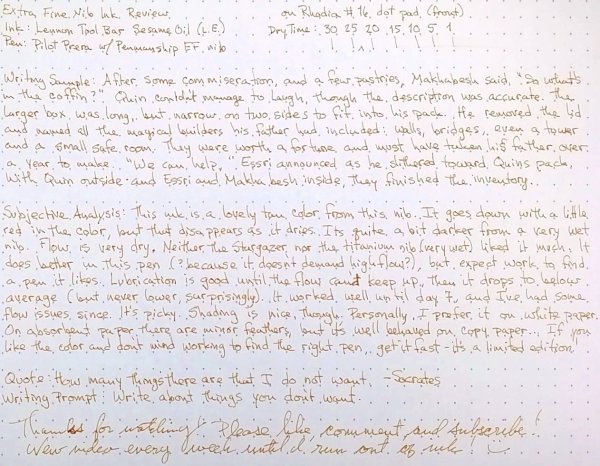 Extra Fine Nib Ink Review on Rhodia #16 dot pad (front)
Ink: Lennon Tool Bar Sesame Oil (L.E.) Dry Time: 30 25 20 15 10 5 1
Pen: Pilot Prera w/ Penmanship EF nib
Writing Sample: After some commiseration, and a few pastries, Makhabesh said, "So what's
in the coffin?" Quin couldn't manage to laugh, though the description was accurate. The
larger box was long, but narrow on two sides to fit into his pack. He removed the lid
and named all the magical builders his father had included: walls, bridges, even a tower
and a small safe room. They were worth a fortune and must have taken his father over
a year to make. "We can help," Essri announced as he slithered toward Quin's pack.
With Quin outside and Essri and Makhabesh inside, they finished the inventory.
Subjective Analysis: This ink is a lovely tan color from this nib. It goes down with a little
red in the color, but that disappears as it dries. Its quite a bit darker from a very wet
nib. Flow is very dry. Neither the Stargazer nor the titanium nib (very wet) liked it much. It
does better in this pen (? because it doesn't demand high flow?), but expect work to find
a pen it likes. Lubrication is good until the flow can't keep up, then it drops to below
average (but never lower, surprisingly). It worked well until day 7, and I've had some
flow issues since. It's picky. Shading is nice, though. Personally, I prefer it on white paper.
On absorbent paper there are minor feathers, but its well behaved on copy paper... If you
like the color and don't mind working to find the right pen, get it fast - it's a limited edition
Quote: How many things there are that I do not want. -Socrates
Writing Prompt: Write about things you don't want.
Thanks for watching! Please like, comment, and subscribe!
New video every week until I run out of ink!